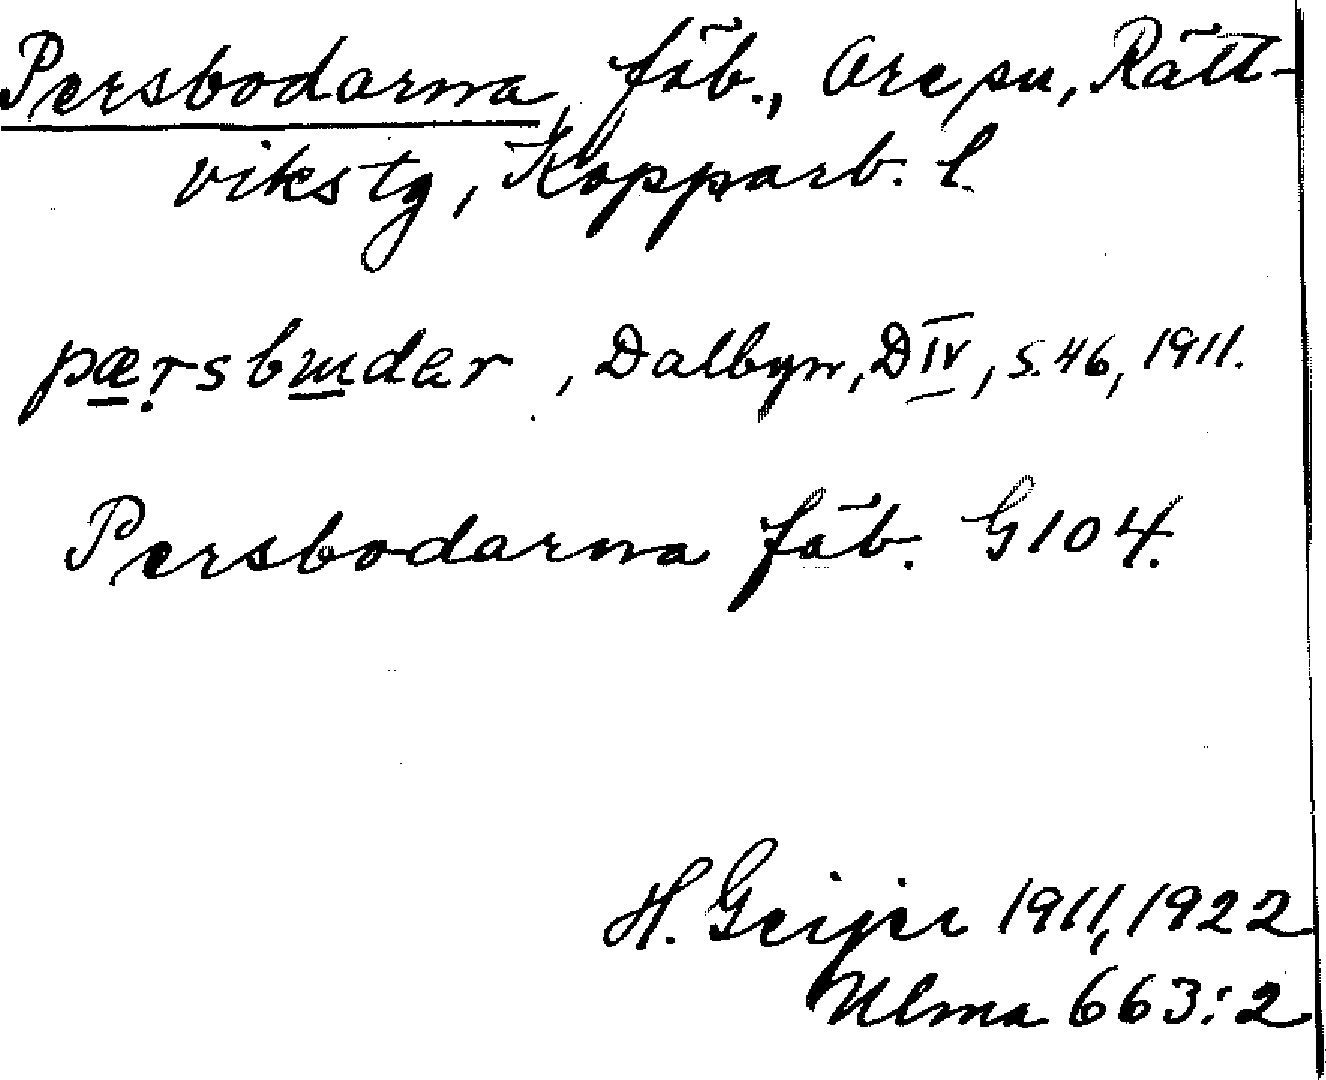 Persbodarna, fäb., Ore sn, Rätt-
vikstg, Kopparb. l.
pæ̲ṛsbɯ̲dar, Dalbyn, D IV, s. 46, 1911.
Persbodarna fäb. G 104.
H. Geijer 1911, 1922
Ulma 663:2